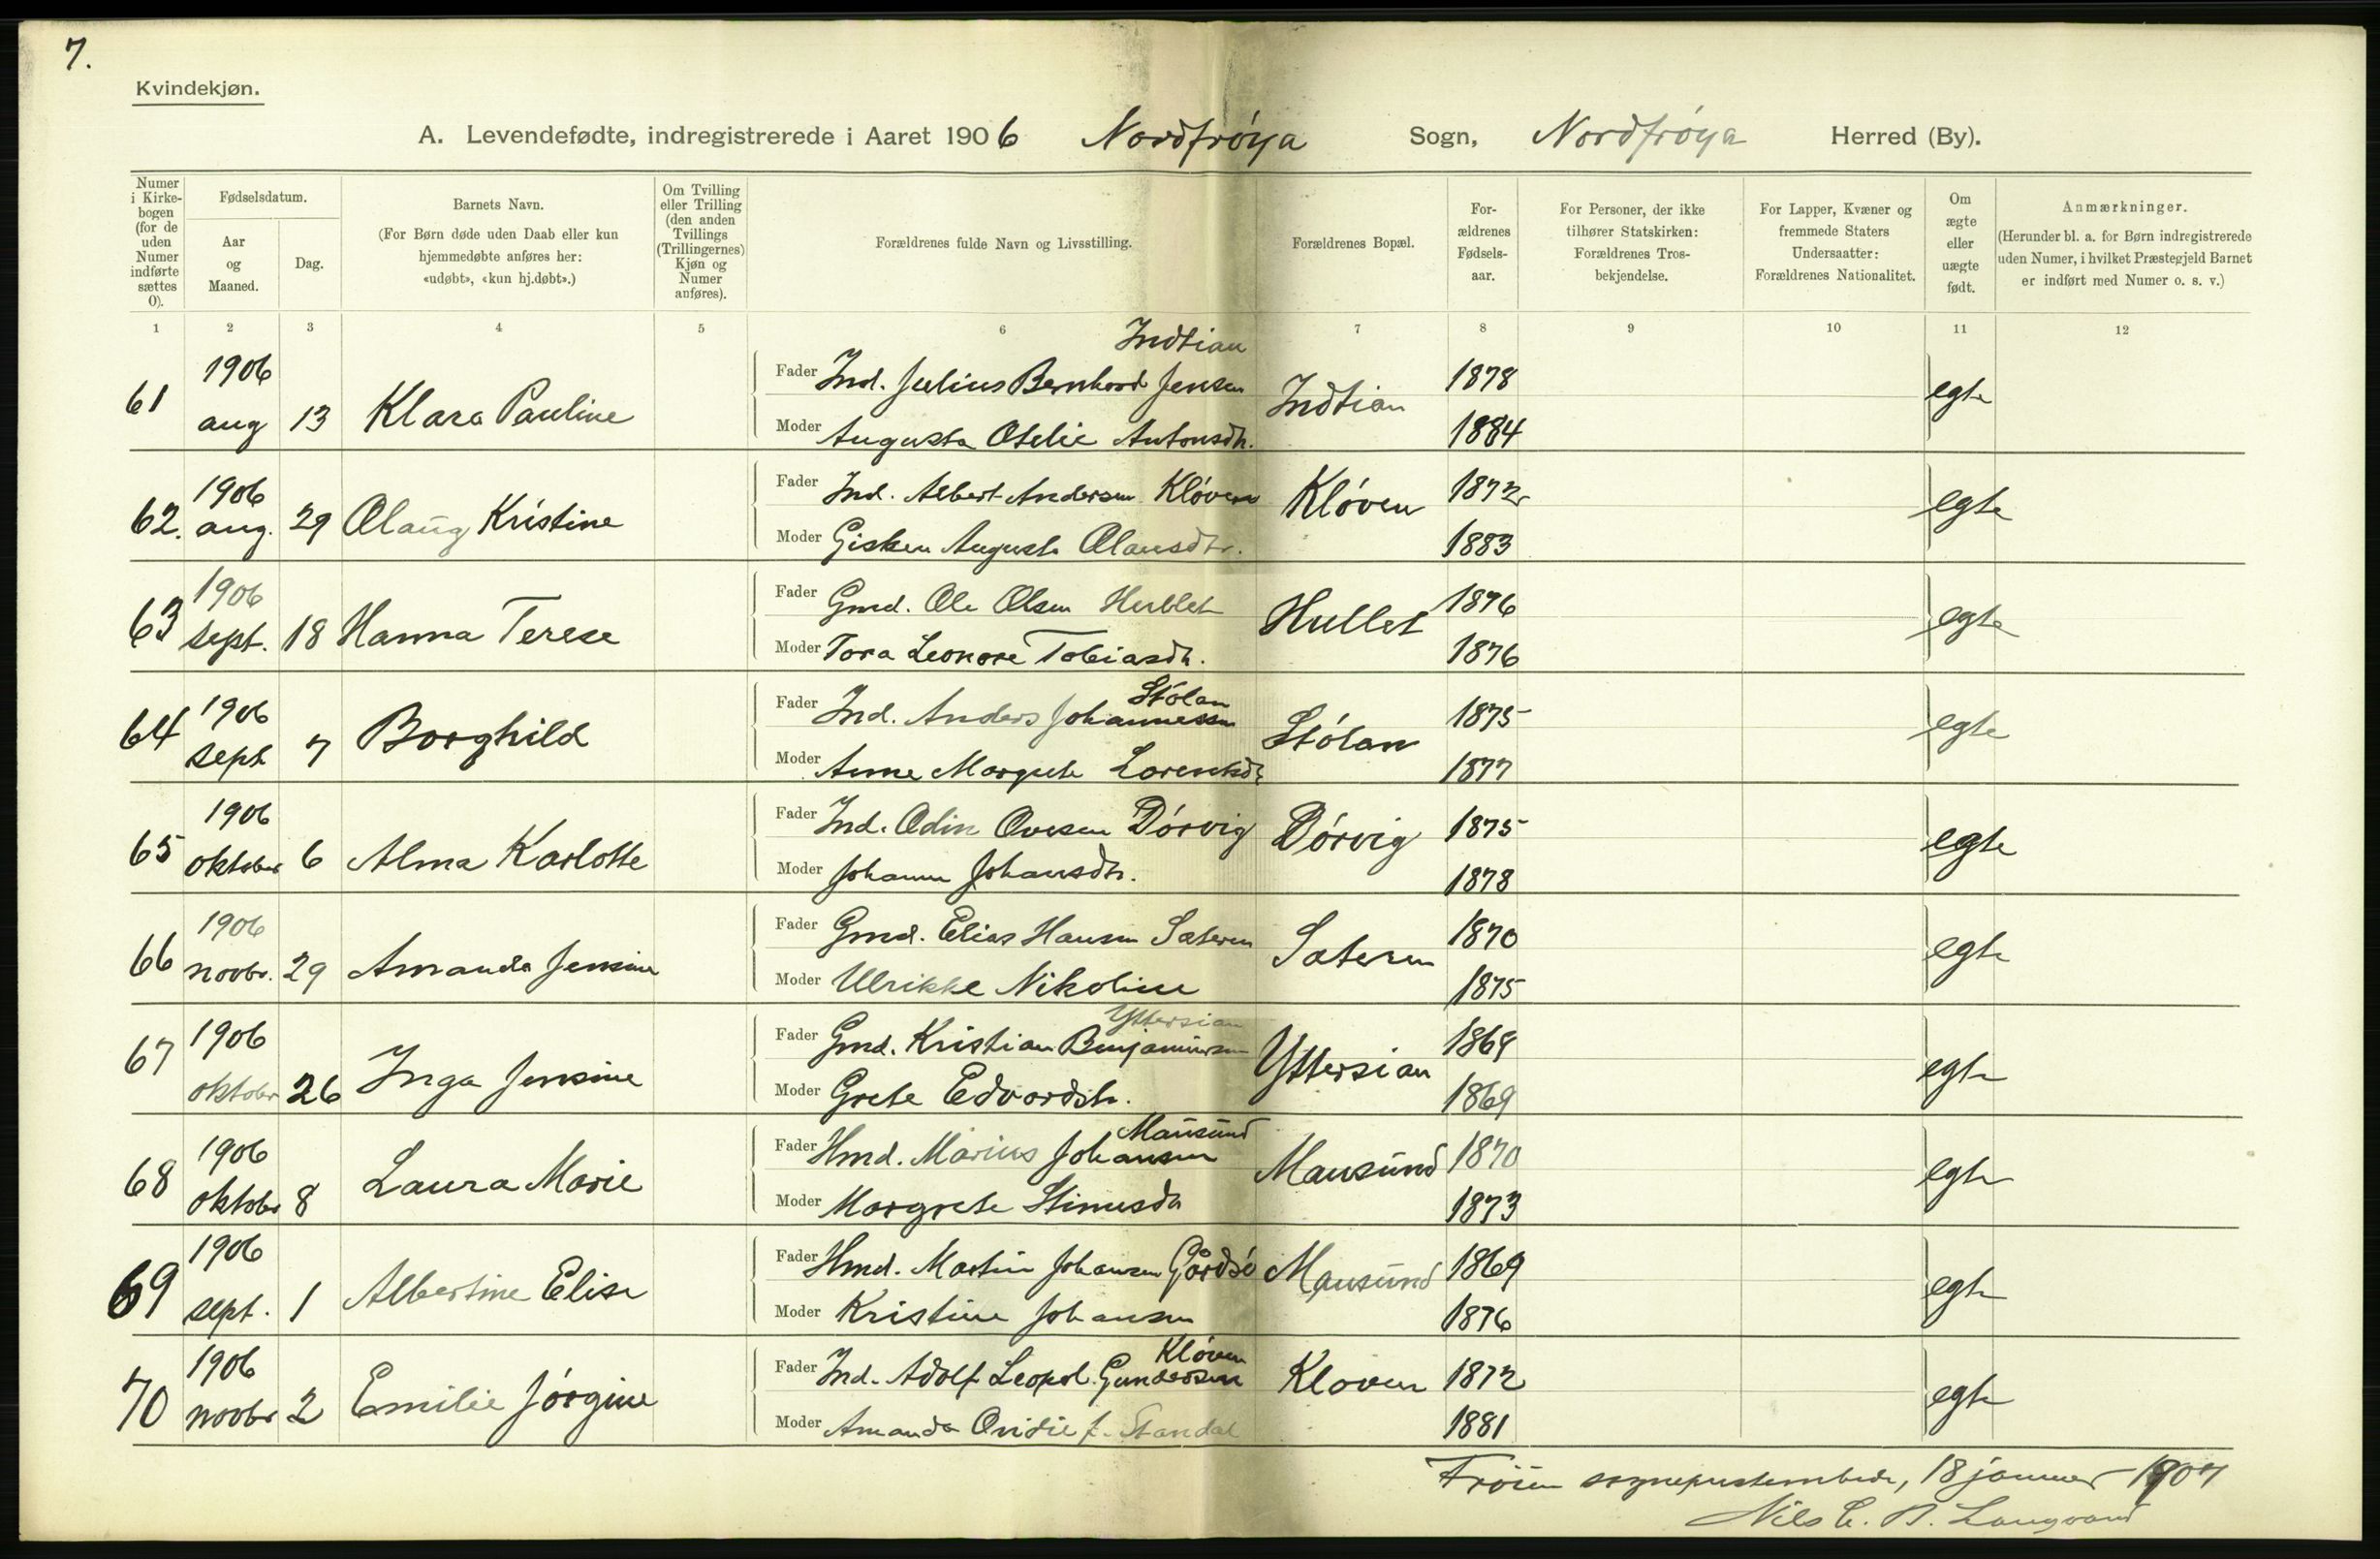 7.
Kvindekjøn.
A. Levendefødte, indregistrerede i Aaret 1906 Nordfróya Sogn, Nordfróya Herred (By).
Numer i Kirkebogen (for de uden Numer indførte sættes 0).
Fødselsdatum.
Aar og Maaned.
Dag.
Barnets Navn.
(For Børn døde uden Daab eller kun hjemmedøbte anføres her: «udøbt», «kun hj.døbt».)
Om Tvilling eller Trilling (den anden Tvillings (Trillingernes) Kjøn og Numer anføres).
Forældrenes fulde Navn og Livsstilling.
Forældrenes Bopæl.
Forældrenes Fødselsaar.
For Personer, der ikke tilhører Statskirken: Forældrenes Trosbekjendelse.
For Lapper, Kvæner og fremmede Staters Undersaatter: Forældrenes Nationalitet.
Om ægte eller uægte født.
Anmærkninger.
(Herunder bl. a. for Børn indregistrerede uden Numer, i hvilket Præstegjeld Barnet er indført med Numer o. s. v.)
1 2 3 4 5 6 7 8 9 10 11 12
Indtian
61 1906 aug 13 Klara Pauline Fader Ind. Julius Bernhard Jensen Indtian 1878 egte
Moder Augusta Otelie Antonsdtr. 1884
62. 1906 aug. 29 Olaug Kristine Fader Ind. Albert Andersen Klóven Klóven 1872 egte
Moder Gisken Augusta Olausdtr. 1883
63 1906 sept. 18 Hanna Terese Fader Gmd. Ole Olsen Hullet Hullet 1876 egte
Moder Tora Leonore Tobiasdtr. 1876
Stólan
64 1906 sept 7 Borghild Fader Ind. Anders Johannessen Stólan 1875 egte
Moder Anne Margrete Lorentsdtr 1877
65 1906 oktober 6 Alma Karlotte Fader Ind. Odin Ovesen Dórvig Dórvig 1875 egte
Moder Johanne Johansdtr. 1878
66 1906 novbr. 29 Amanda Jensine Fader Gmd. Elias Hansen Sæteren Sæteren 1870 egte
Moder Ulrikke Nikoline 1875
Yttersian
67 1906 oktobr 26 Inga Jensine Fader Gmd. Kristian Benjaminsen Yttersian 1869 egte
Moder Grete Edvardsdtr. 1869
Mausund
68 1906 oktobr 8 Laura Marie Fader Hmd. Marius Johansen Mausund 1870 egte
Moder Margrete Stinusda 1873
69 1906 sept. 1 Albertine Elise Fader Hmd. Martin Johansen Gårdsó Mausund 1869 egte
Moder Kristine Johansen 1876
Klóven
70 1906 novbr 2 Emilie Jórgine Fader Ind. Adolf Leopol. Gundersen Kloven 1872 egte
Moder Amanda Ovidie f. Standal 1881
Fróien sogneprestembede, 18 januar 1907
Nils